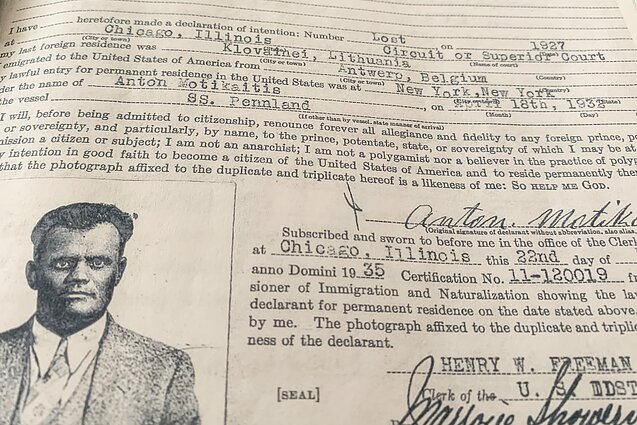 I have heretofore made a declaration of intention: Number Lost on 1927
at Chicago, Illinois Circuit or Superior Court
(City or town) (Name of court)
my last foreign residence was Klovainei, Lithuania
(City or town) (Country)
emigrated to the United States of America from Antwerp, Belgium
lawful entry for permanent residence in the United States was at New York, New York
(City or town)
under the name of Anton Motikaitis, on 18th, 193
(Month) (Day)
the vessel SS. Pennland
(If other than by vessel, state manner of arrival)
I will, before being admitted to citizenship, renounce forever all allegiance and fidelity to any foreign prince, p
or sovereignty, and particularly, by name, to the prince, potentate, state, or sovereignty of which I may be at
mission a citizen or subject; I am not an anarchist; I am not a polygamist nor a believer in the practice of polyg
intention in good faith to become a citizen of the United States of America and to reside permanently ther
that the photograph affixed to the duplicate and triplicate hereof is a likeness of me: So HELP ME GOD.
Anton. Motik
(Original signature of declarant without abbreviation, also alias,
Subscribed and sworn to before me in the office of the Cler
at Chicago, Illinois this 22nd day of
anno Domini 1935 Certification No. 11-120019 fr
sioner of Immigration and Naturalization showing the la
declarant for permanent residence on the date stated above,
by me. The photograph affixed to the duplicate and triplic
ness of the declarant.
HENRY W. FREEMAN
[SEAL] Clerk of the U. S. DIST